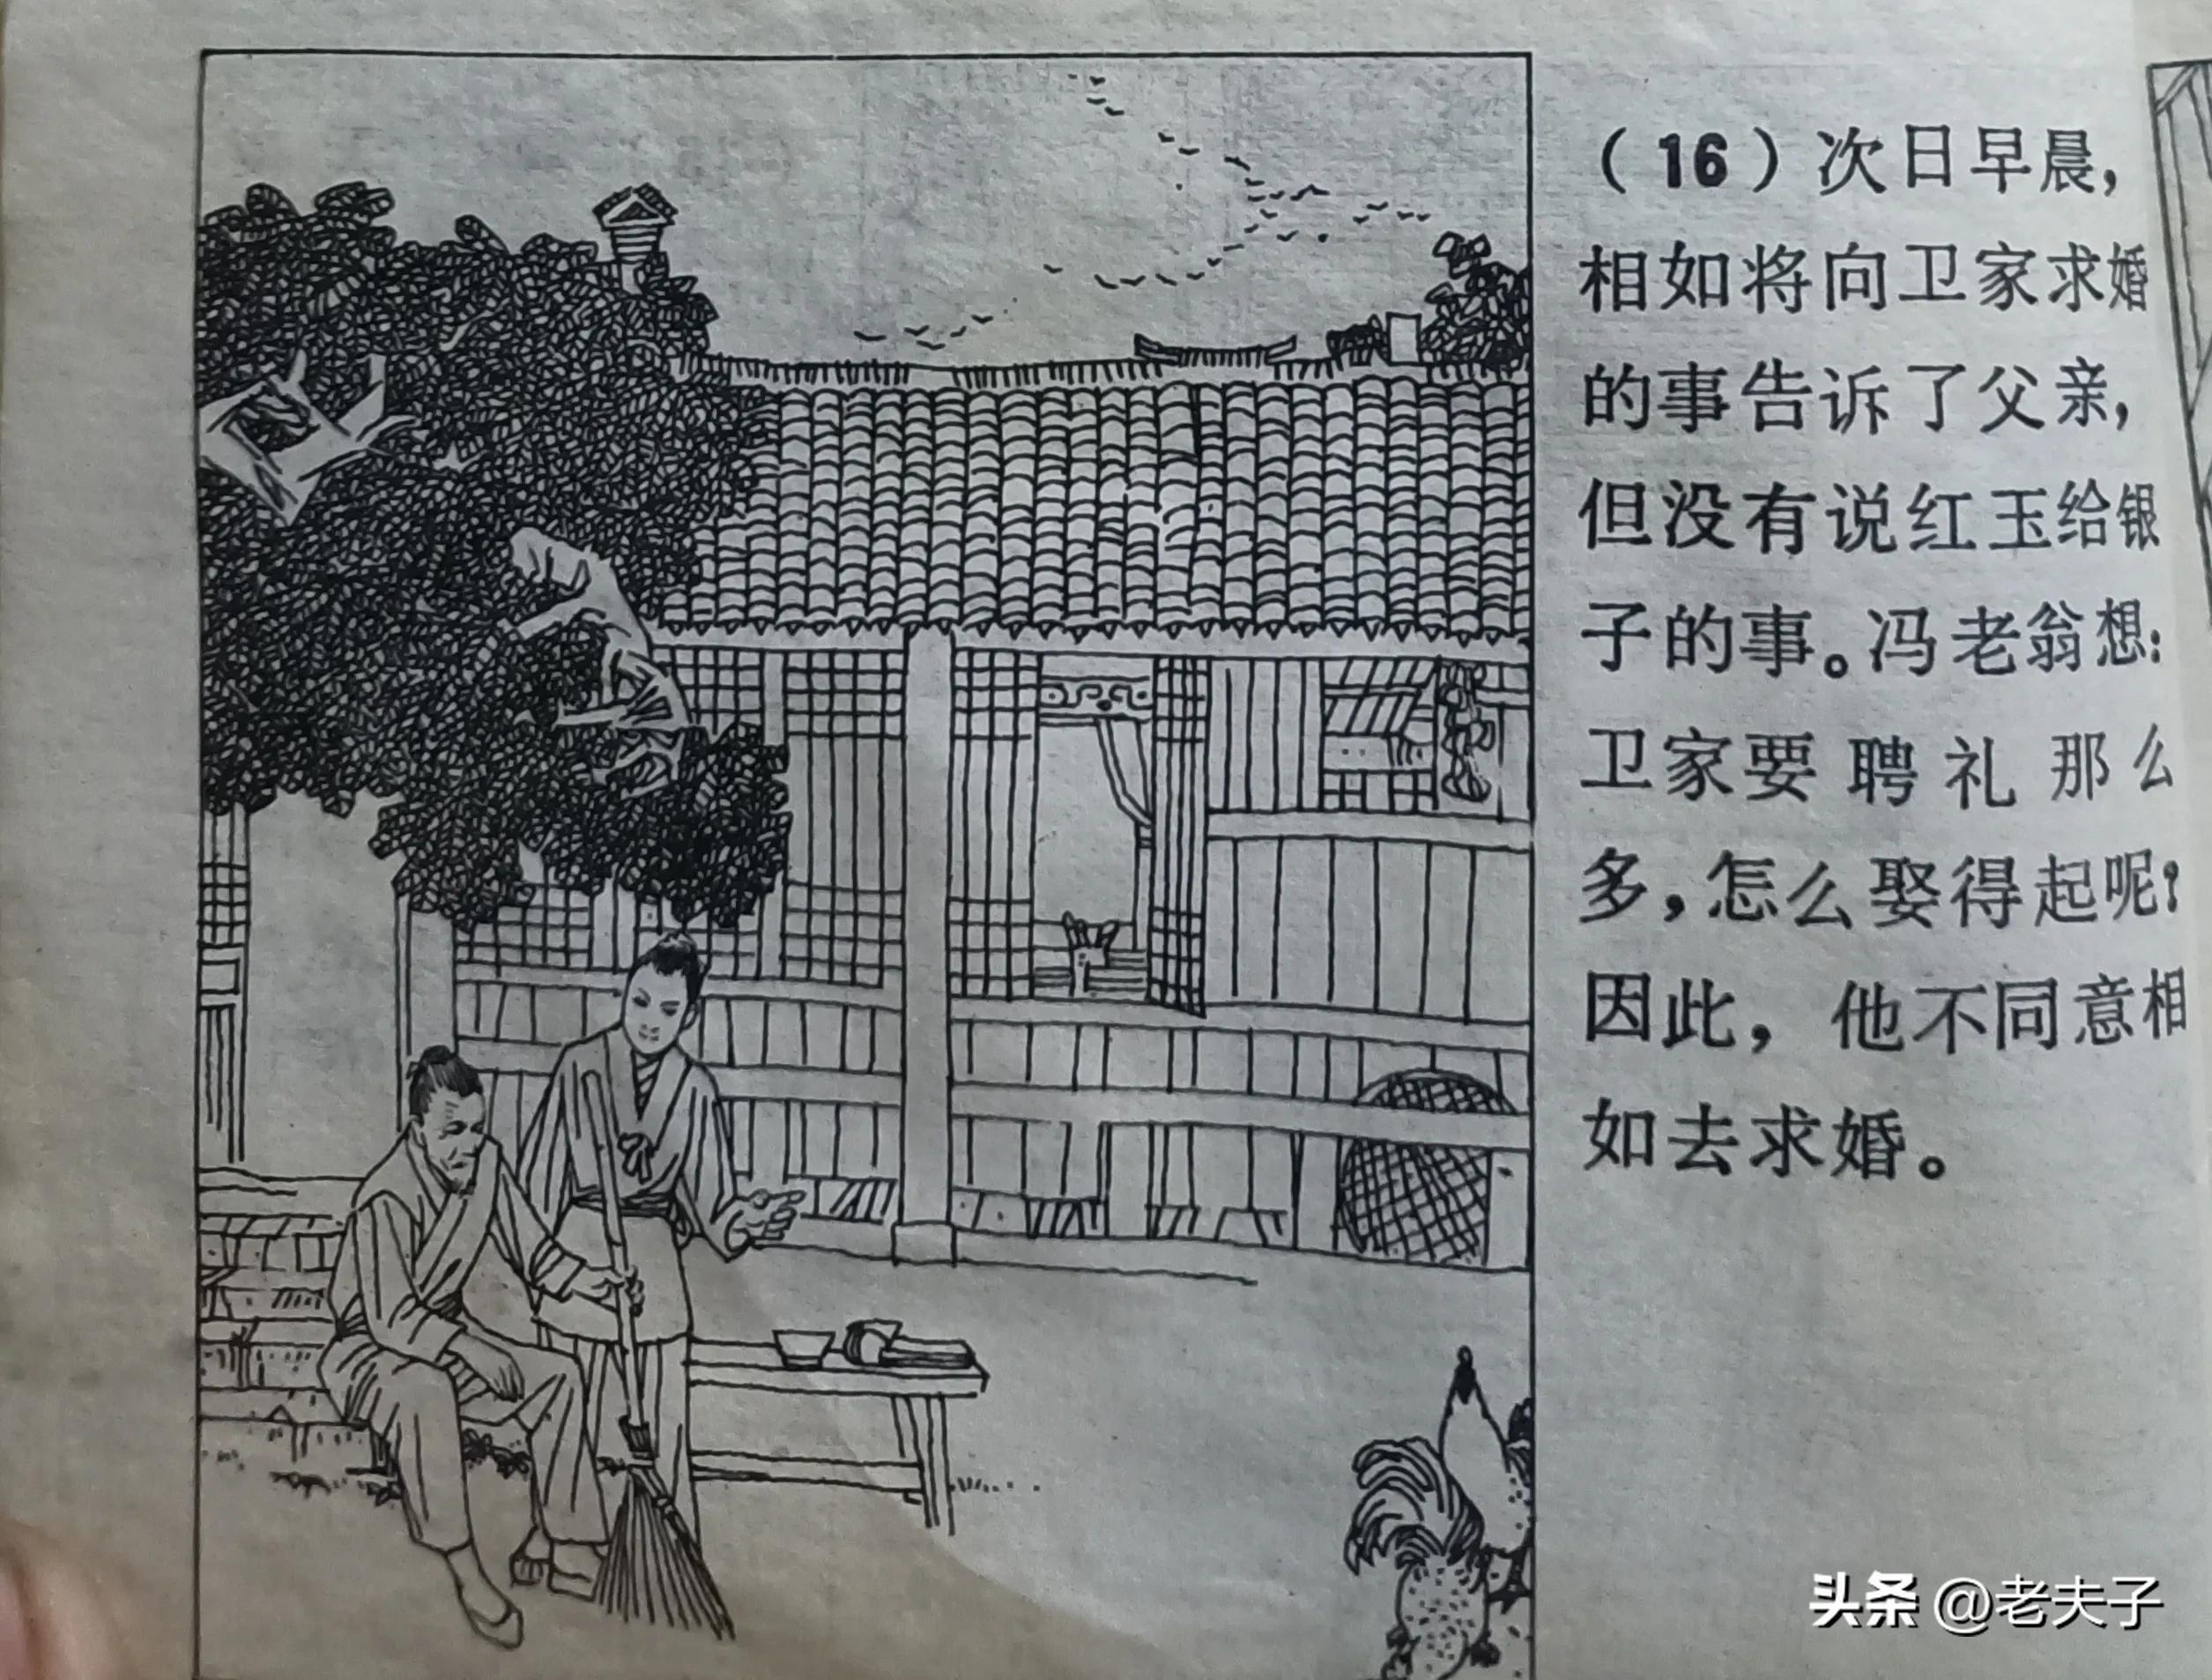 （16）次日早晨，
相如将向卫家求婚
的事告诉了父亲，
但没有说红玉给银
子的事。冯老翁想：
卫家要聘礼那么
多，怎么娶得起呢？
因此，他不同意相
如去求婚。
头条 @老夫子